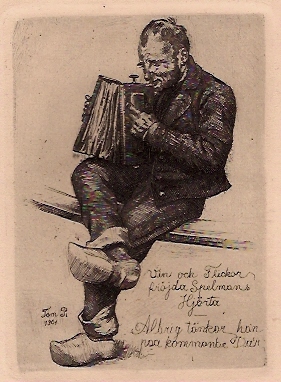 Vin och Flickor
fröjda Spelmans
Hjärta
Aldrig tänker han
paa kommande Dar
1901